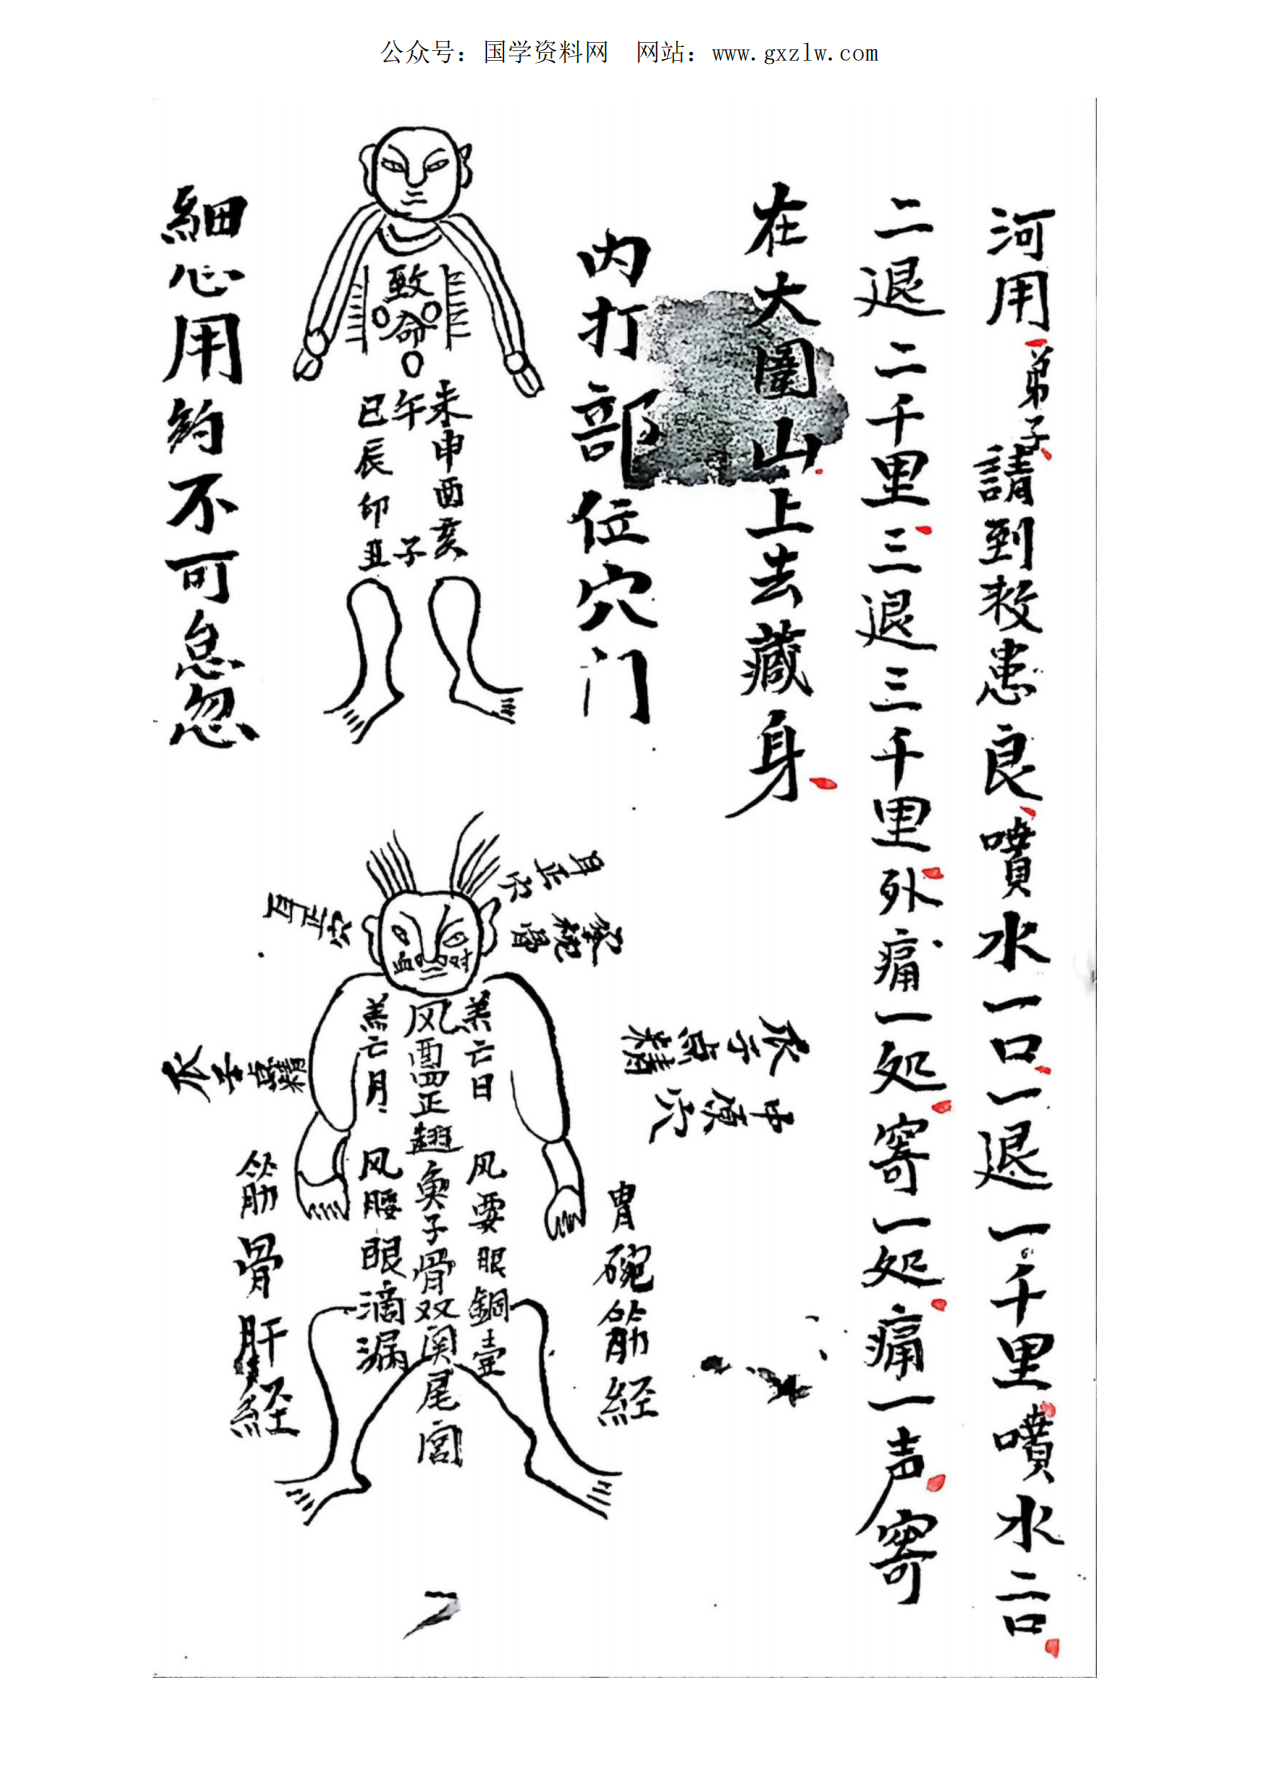 公众号：国学资料网　网站：www.gxzlw.com
河用弟子請到救患良噴水一口一退一千里噴水二口
二退二千里三退三千里外痛一处寄一处痛一声寄
在大圍山上去藏身
内打部位穴门
致命
未申酉亥
午
巳辰卯丑
子
細心用药不可怠忽
耳正穴
百正穴
羔亡日
羔亡月
风要眼銅壺
风腰眼滴漏
胃碗筋経
筋骨肝経